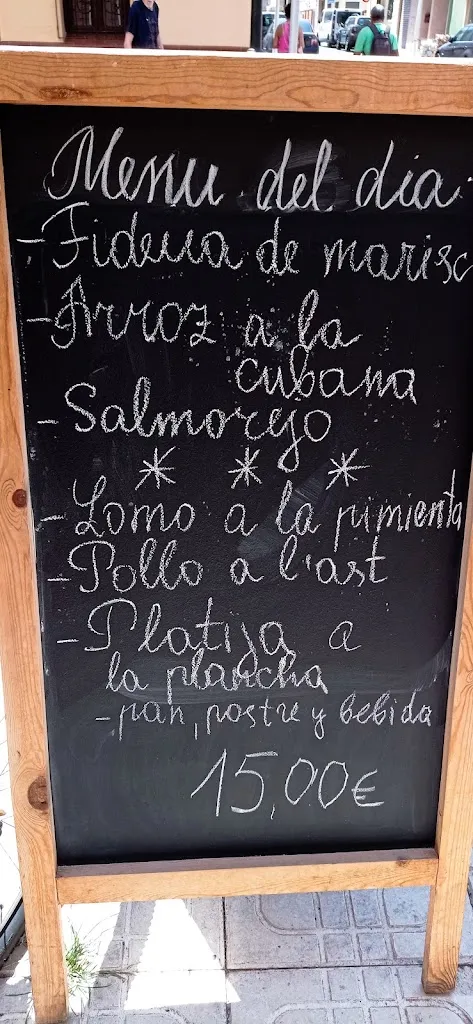 Menu del dia.
- Fideua de marisc
- Arroz a la
cubana
- Salmorejo
* * *
- Lomo a la pimienta
- Pollo a l'ast
- Platija a
la plancha
- pan, postre y bebida
15,00€